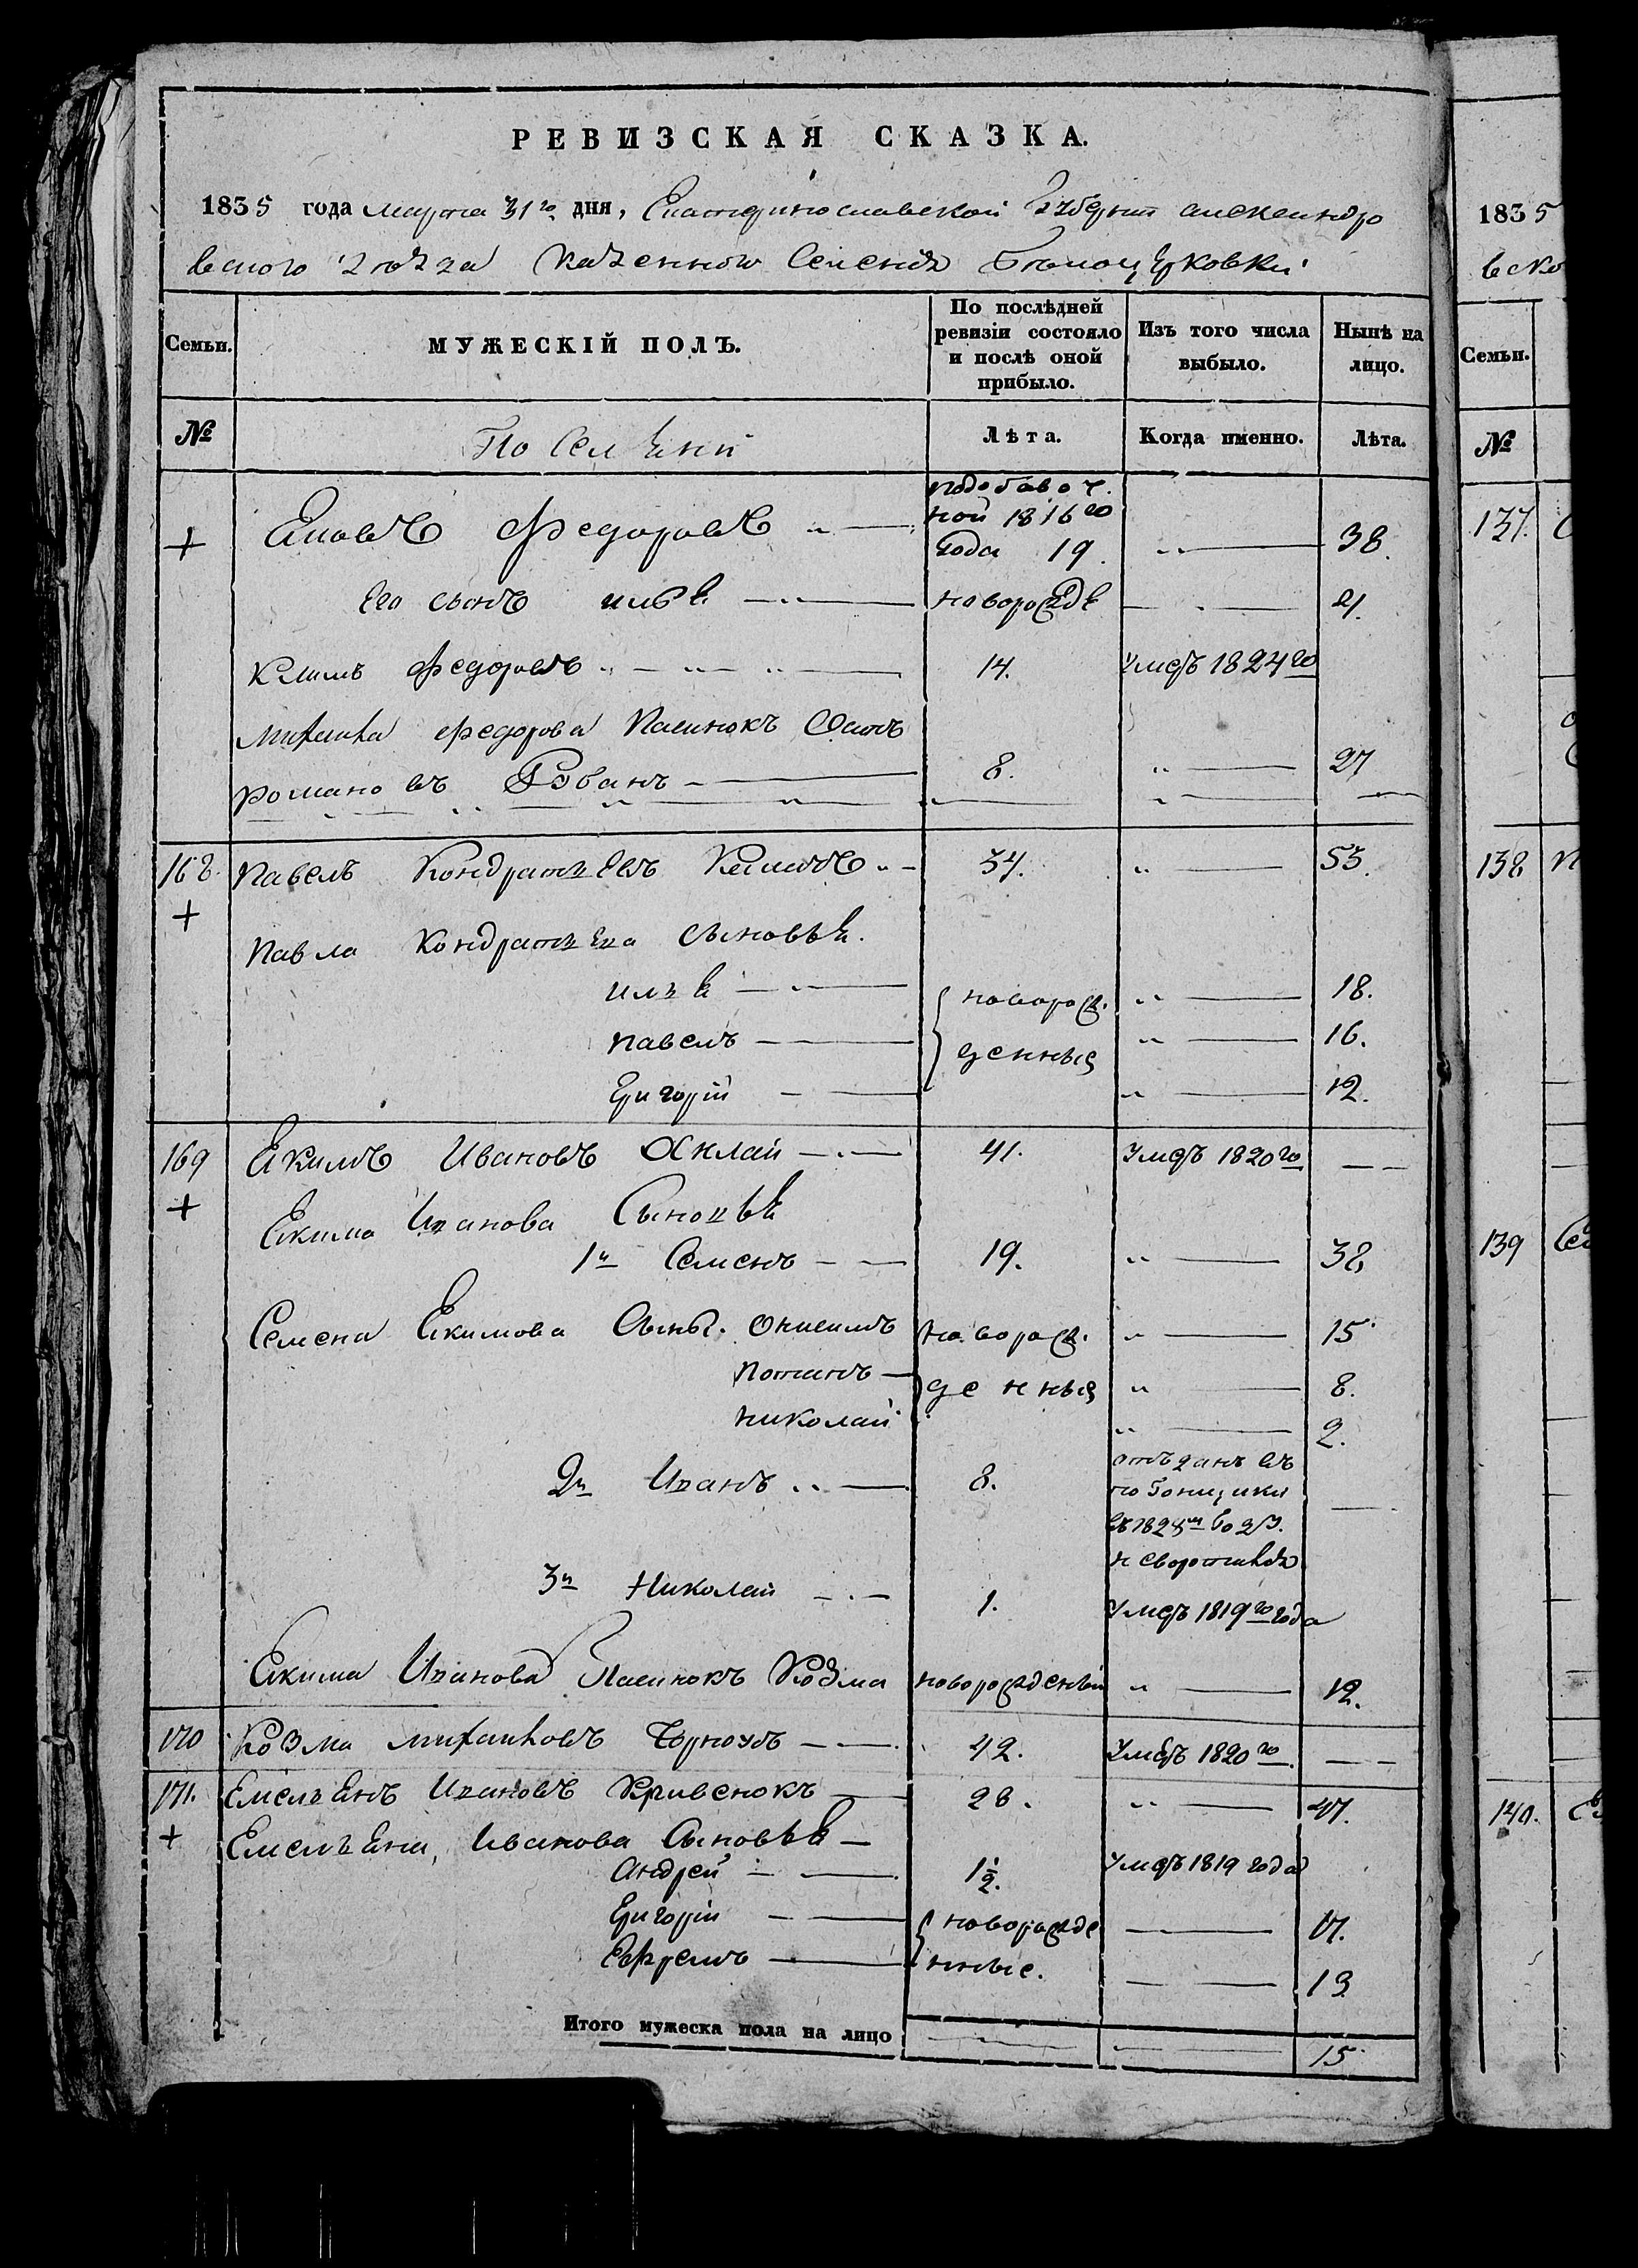 РЕВИЗСКАЯ СКАЗКА.
1835 года марта 31го дня, Екатеринославской Губерніи александро
вского уезда казенного Селенія Белоцерковки
Семьи. МУЖЕСКІЙ ПОЛЪ. По послѣдней ревизіи состояло и послѣ оной прибыло. Изъ того числа выбыло. Нынѣ на лицо.
№ По Селенїи Лѣта. Когда именно. Лѣта.
+ Яковъ Федоровъ подобавоч. ной 1816го года 19. 38.
Его сынъ илья новорожде 4.
Климъ Федоровъ 14. Умеръ 1824го
михайла федорова Пасинокъ
романовъ 8. 27
168. Павелъ Кондратьевъ 34. 53.
+
Павла Кондратьева сыновья.
илья новорож. 18.
павелъ денныя 16.
Григорій 12.
169 Якимъ Ивановъ 41. Умеръ 1820го
+
Якима Иванова Сыновья
1й Семенъ 19. 38
Семена Якимова Сынъ. онисимъ новорож. 15
потапъ денныя 8.
николай 2.
2й Иванъ 8. отъданъ въ погонщики въ 1828м году. не возротился
3й Николай 1. Умеръ 1819го года
Якима Иванова Пасинокъ Козма новорожденый 12.
170 Козма михайловъ Чорноусъ 42. Умеръ 1820го
171. Емельянъ Ивановъ Кривенокъ 28. 47.
+ Емельяна, Иванова Сыновья
Андрей 1½. Умеръ 1819 года
Григорій новорожде 17.
Ефремъ нные. 13
Итого мужеска пола на лицо 15
1835
вско
Семьи.
№
137.
138
139
140.